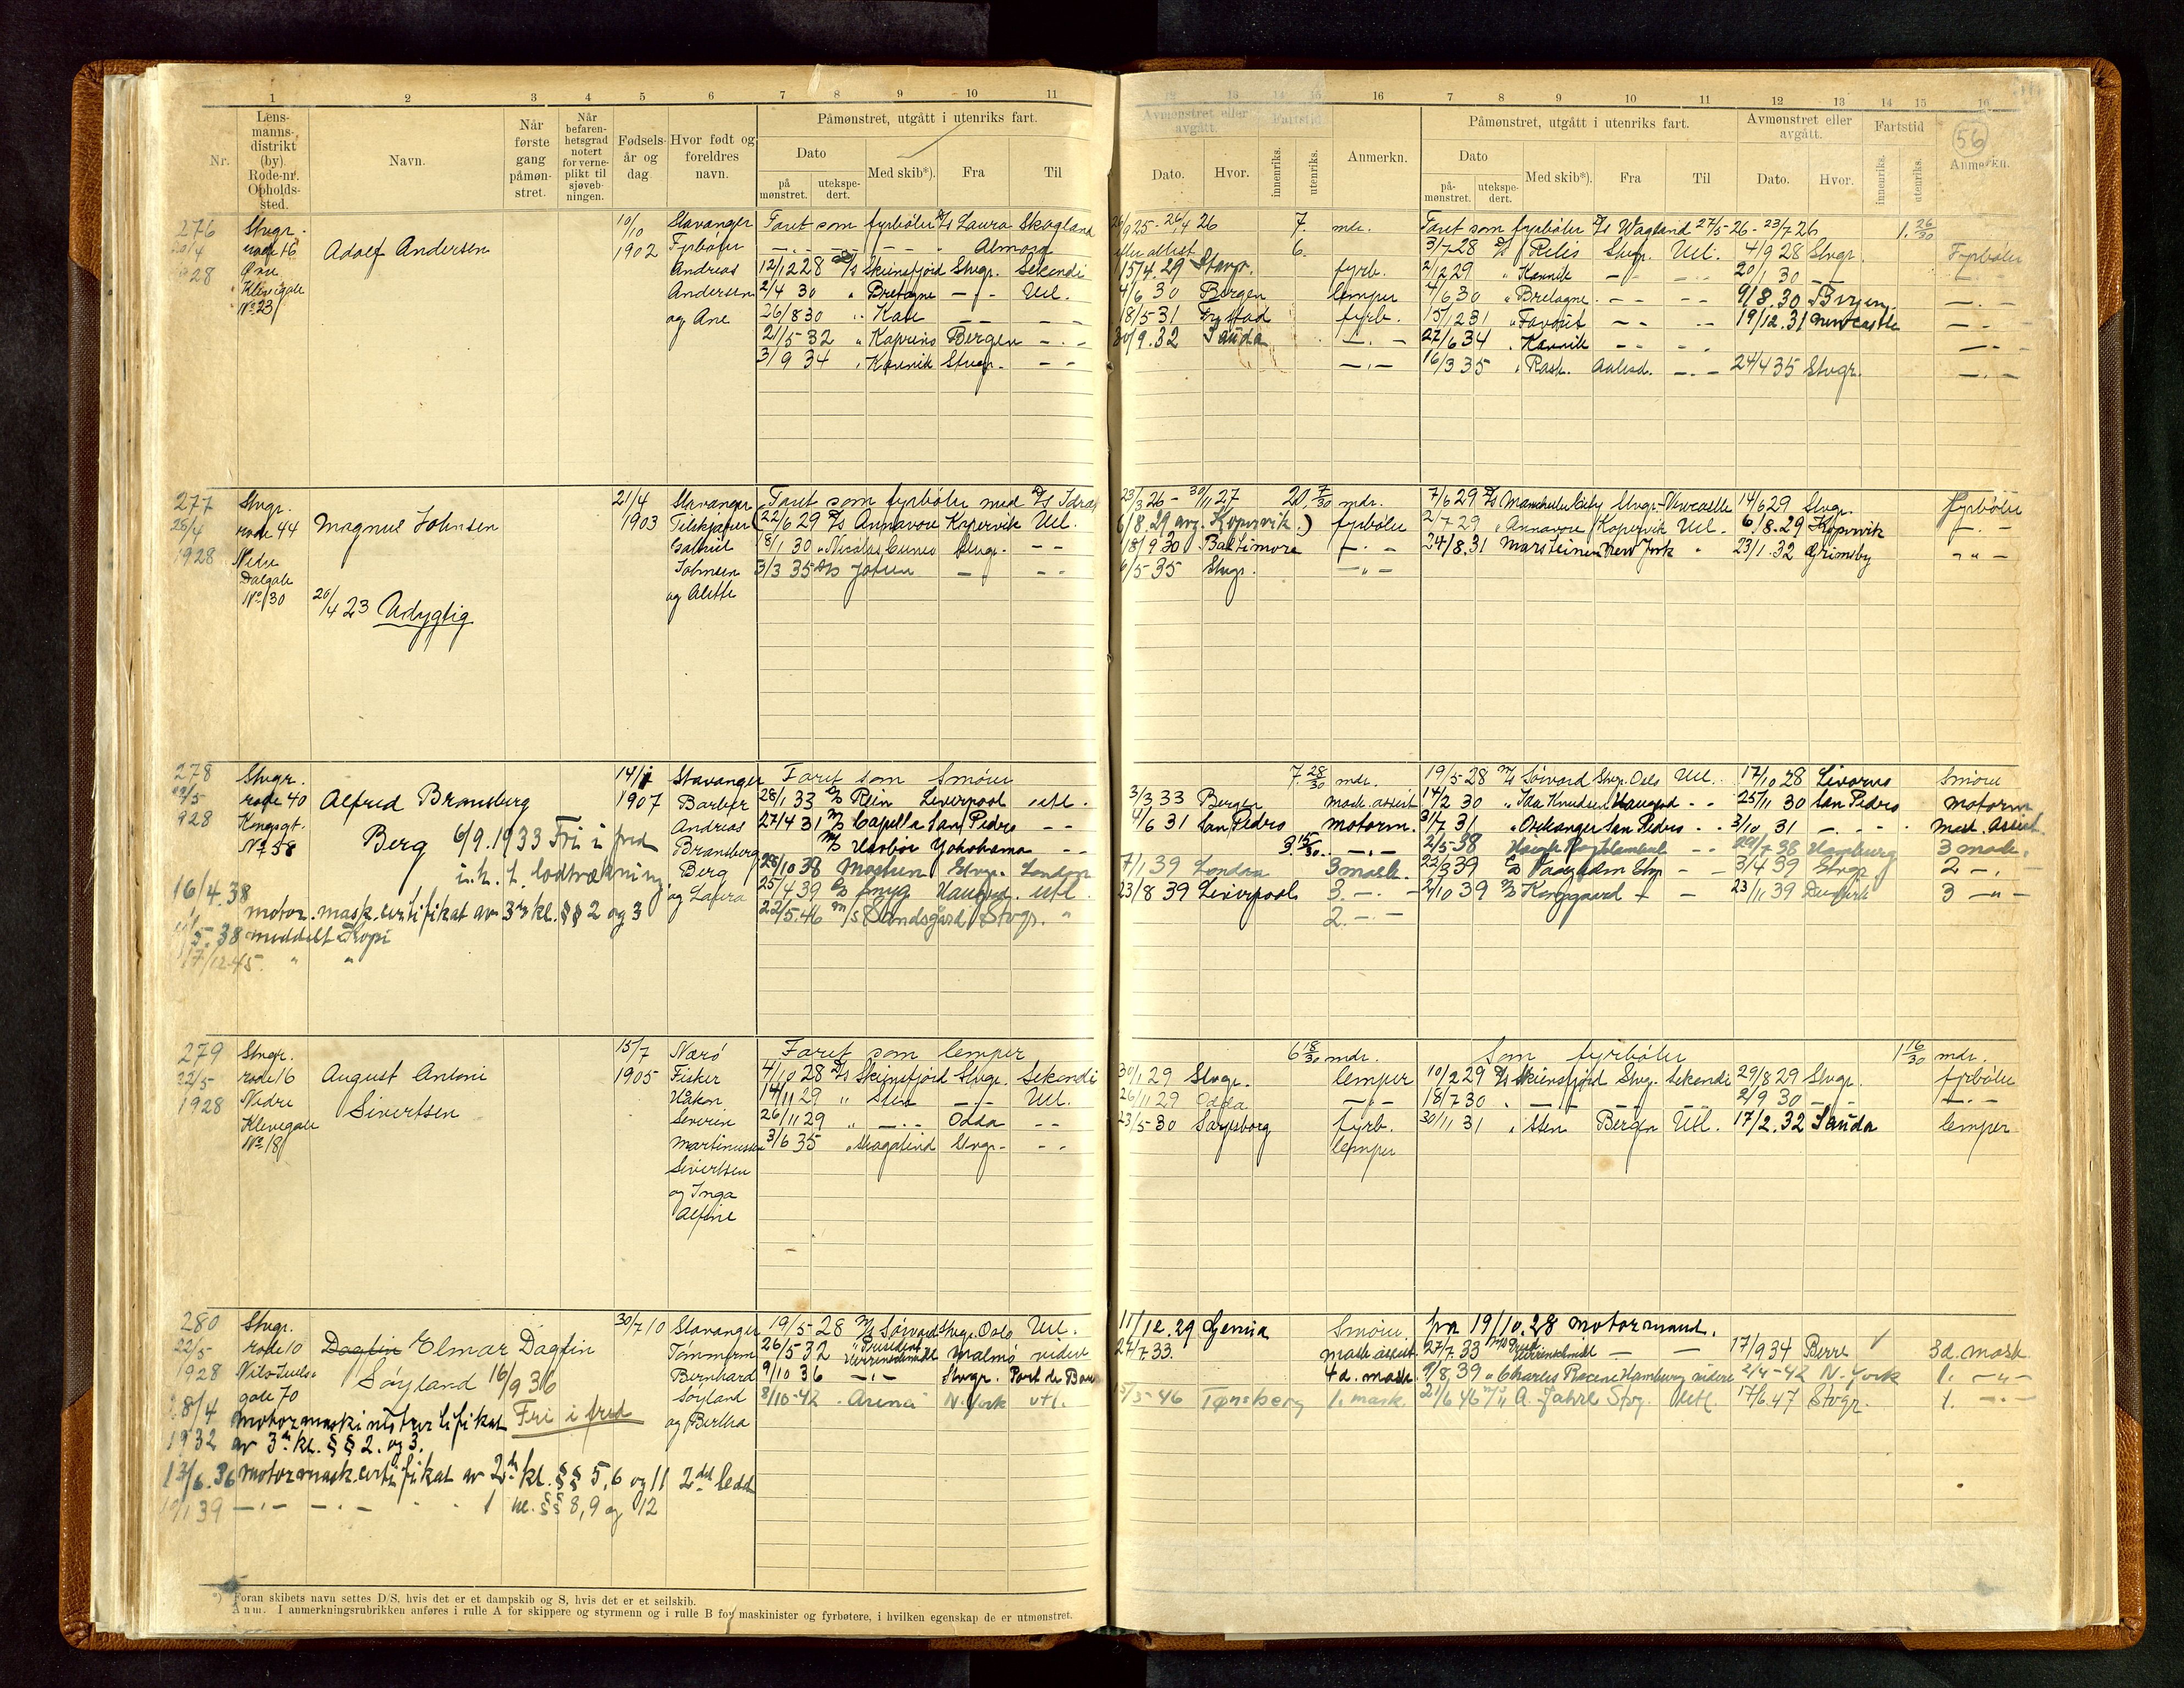 1 2 3 4 5 6 7 8 9 10 11
Nr.
Lens-
manns-
distrikt
(by).
Rode-nr.
Opholds-
sted.
Navn.
Når
første
gang
påmøn-
stret.
Når
befaren-
hetsgrad
notert
for verne-
plikt til
sjøveb-
ningen.
Fødsels-
år og
dag
Hvor født og
foreldres
navn.
Påmønstret, utgått i utenriks fart.
Dato
på
mønstret.
utekspe-
dert.
Med skib*).
Fra
Til
12 13 14 15 16 7 8 9 10 11 12 13 14 15 16
Avmønstret eller
avgått.
Fartstid
Dato.
Hvor.
innenriks.
utenriks.
Anmerkn.
Påmønstret, utgått i utenriks fart.
Dato
på-
mønstret.
utekspe-
dert.
Med skib*).
Fra
Til
Avmønstret eller
avgått.
Dato.
Hvor.
Fartstid
innenriks.
utenriks.
56
Anmerkn.
276 Stvgr. 10/10 Stavanger Faret som fyrbøter D/s Laura Skogland 26/9 25 - 26/4 26 7. mdr. Faret som fyrbøter D/s Wagland 27/5-26 - 23/7 26 1. 26/30
20/4 rode 16 Adolf Andersen 1902 Fyrbøter Almora 6. 3/7-28 D/s Stvgr. Utl. 4/9 28 Stvgr. Fyrbøter
1928 Øvre Andreas 12/12 28 D/s Skiensfjord Stvgr. Sekondi 15/4.29 Stavgr. fyrb. 2/12 29 " Karmik 20/1 30
Klevegate Andersen 2/4 30 " Bretagne Utl. 4/6 30 Bergen lemper 4/6 30 " Bretagne 9/8.30 Bergen
No 23 og Ane 26/8 30 " Kari 18/5-31 fyrb. 15/12 31 " Favorit 19/12.31 Newcastle
21/5-32 " Kaprino Bergen 30/9.32 Sauda 27/6 34 " Karmik
3/9 34 " Karmik Stvgr. 16/3 35 " Rask. Aalesd. 24/4 35 Stvgr.
277 Stvgr. 21/4 Stavanger Faret som fyrbøter med D/s Idræt 23/3 26 - 30/11 27 20. 7/30 mdr. 7/6 29 D/s Manchester City Stvgr. Newcastle 14/6 29 Stvgr. fyrbøter
25/4 rode 44 Magnus Johnsen 1903 (22/6 29 D/s Annavore Kopervik Utl. 6/8.29 avg. Kopervik.) fyrbøter 2/7 29 " Annavore Kopervik Utl. 6/8.29 Kopervik
1928 Nedre Gabriel 18/1 30 " Nicolas Cuneo Stvgr. 18/9 30 Baltimore 24/8.31 Marsteinen New York 23/1.32 Grimsby
Dalgate Johnsen 3/3 35 D/s 6/5-35 Stvgr.
No 130 20/4 23 Udygtig og Alette
278 Stvgr. 14/1 Stavanger Faret som Smører 7. 28/30 mdr. 19/5-28 M/s Sørvard Stvgr. Oslo Utl. 17/10 28 Livorno Smører
22/5 rode 40 Alfred Bransberg 1907 Barber 28/1 33 M/s Rein Liverpool utl. 3/3 33 Bergen mask. assist 14/2 30 " Ida Knudsen Haugesd. 25/11 30 San Pedro motorm
1928 Kongsgt. Berg 6/9.1933 Fri i fred Andreas 27/4 31 M/s Capella San Pedro 4/6 31 San Pedro motorm. 31/7 31 " Orkanger San Pedro 3/10 31 Mask. Assist.
No 58 i.h.t. lodtrækning Bransberg M/s Havbør Yokohama 3. 15/30 2/5-38 29/7 38 Hamburg 3 mask.
Berg 28/10 38 Mosstrun Stvgr. London 7/1 39 London 3 mask. 22/3 39 Stvgr 3/4 39 Stvgr 2
16/4.38 motor. mask. certifikat av 3die kl. §§ 2 og 3 og Lovise 25/4 39 Haugesd. Utl. 23/8 39 Liverpool 3. 2/10 39 D/s Kongsgaard 23/11 39 3
22/5.46 M/s Sandsgård Stvgr. 2.
11/5.38 meddelt Kopi
17/12 45. " "
279 Stvgr. 15/7 Nærø Faret som lemper 6 18/30 mdr. Som fyrbøter 1 16/30 mdr.
22/5 rode 16 August Antoni 1905 Fisker 4/10 28 D/s Skiensfjord Stvgr. Sekondi 30/1 29 Stvgr. lemper 10/2 29 D/s Skiensfjord Stvg. Sekondi 29/8 29 Stvgr. fyrbøter
1928 Nedre Sivertsen Håkon 14/11 29 " Sten Utl. 26/11 29 Odda 18/7 30 2/9 30
Klevegate Severin 26/11 29 " Odda 23/5-30 Sarpsborg fyrb. 30/11 31 " Sten Bergen Utl. 17/2.32 Sauda lemper
No 18 Martinussen 3/6 35 " Skagatind Stvgr. lemper
Sivertsen
og Inga
Alfine
280 Stvgr. 30/7 10 Stavanger 19/5-28 M/s Sørvard Stvgr. Oslo Utl. 11/12.29 Genua Smører. fra 19/10.28 motormand.
22/5 rode 10 Dagfin Elmar Dagfin Tømmerm 26/5 32 " President Herrenschmidt Malmø videre 27/7.33. mask. assist. 27/7.33 17/9 34 Berre 3d. mask
1928 Nils Juels- Søyland 16/9 36 Bernhard 9/10 36 Stvgr. Port de Bouc 4d. mask. 9/8.39 " Charles Racine Hamburg videre 2/4-42 N. York 1.
gate 70 Søyland 8/10-42 Arena N. York utl. 15/3-46 Tønsberg 1. mask. 21/6 46 M/s A. Jahre Stvg. Utl. 17/6.47 Stvgr. 1.
28/4 motormaskinistcertifikat Fri i fred og Bertha
1932 av 3die kl. §§ 2. og 3.
13/6.36 motormask.certifikat av 2den kl. §§ 5,6 og 11 2det ledd
19/1 39 1 kl. §§ 8,9 og 12
*) Foran skibets navn settes D/S, hvis det er et dampskib og S, hvis det er et seilskib.
Anm. I anmerkningsrubrikken anføres i rulle A for skippere og styrmenn og i rulle B for maskinister og fyrbøtere, i hvilken egenskap de er utmønstret.